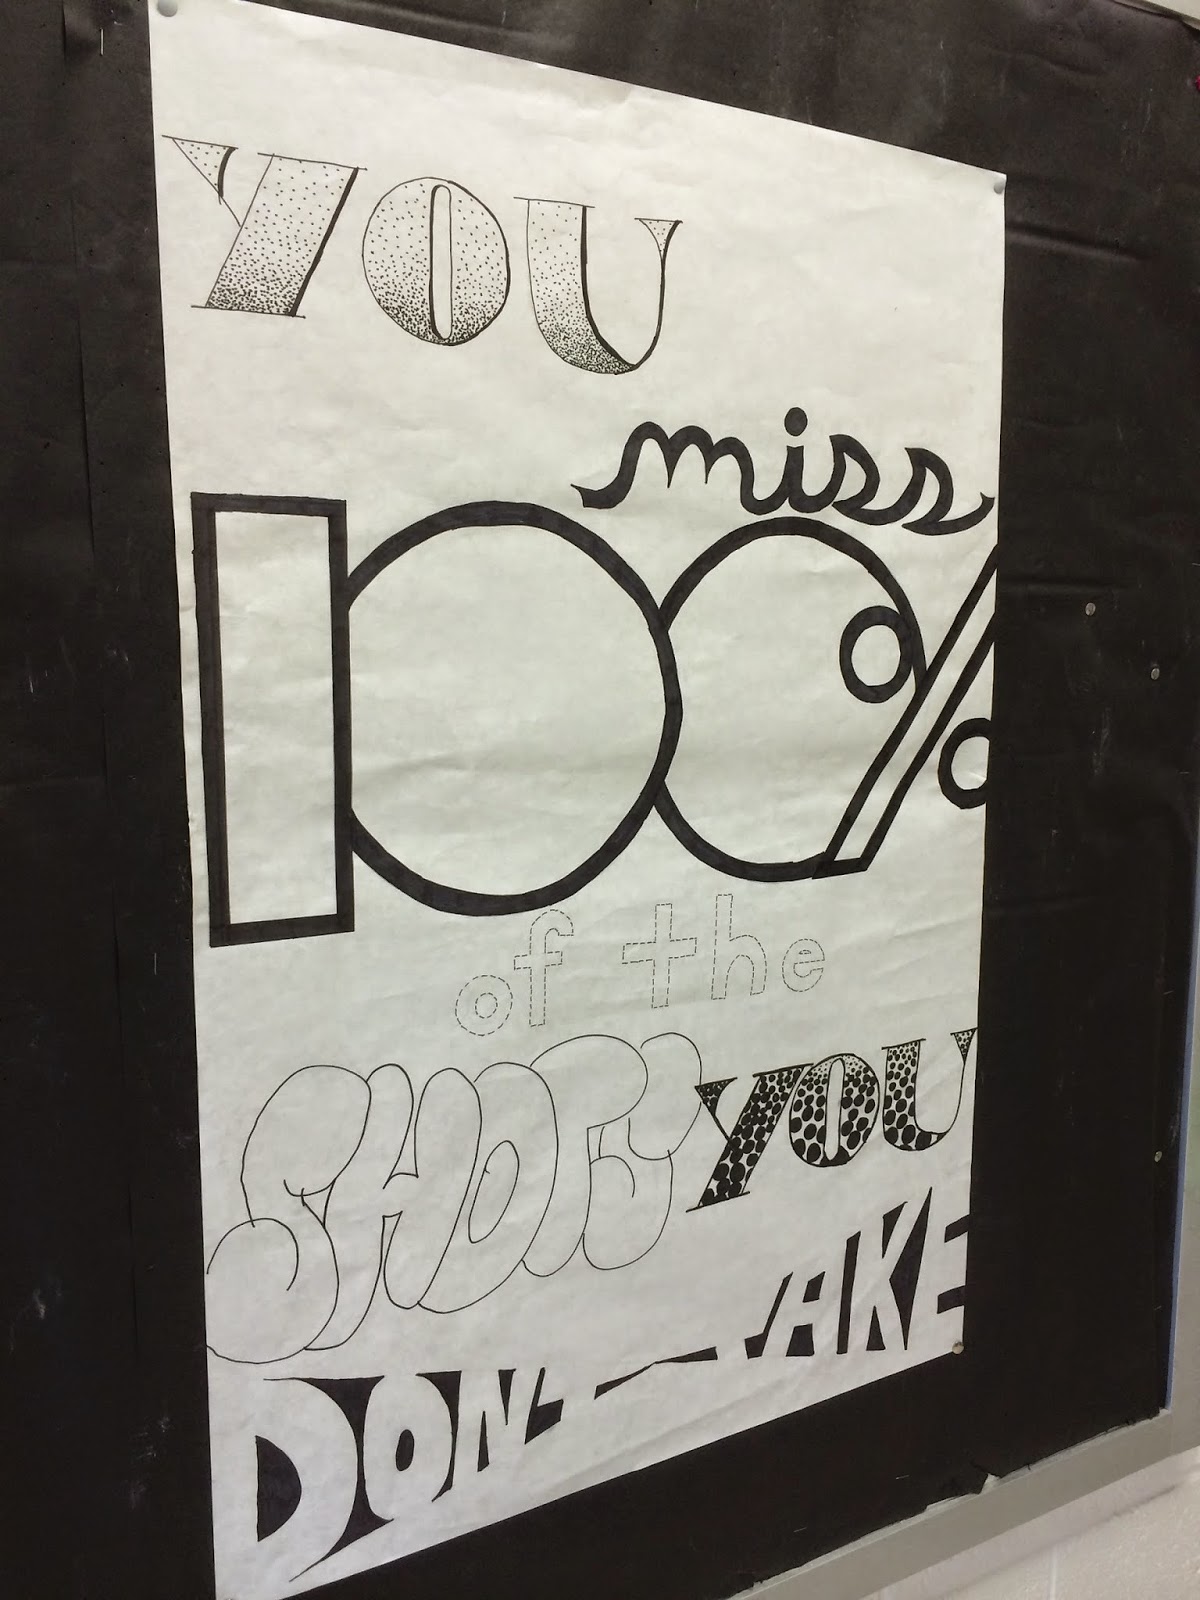 YOU
miss
100%
of the
SHOTS YOU
DONT TAKE